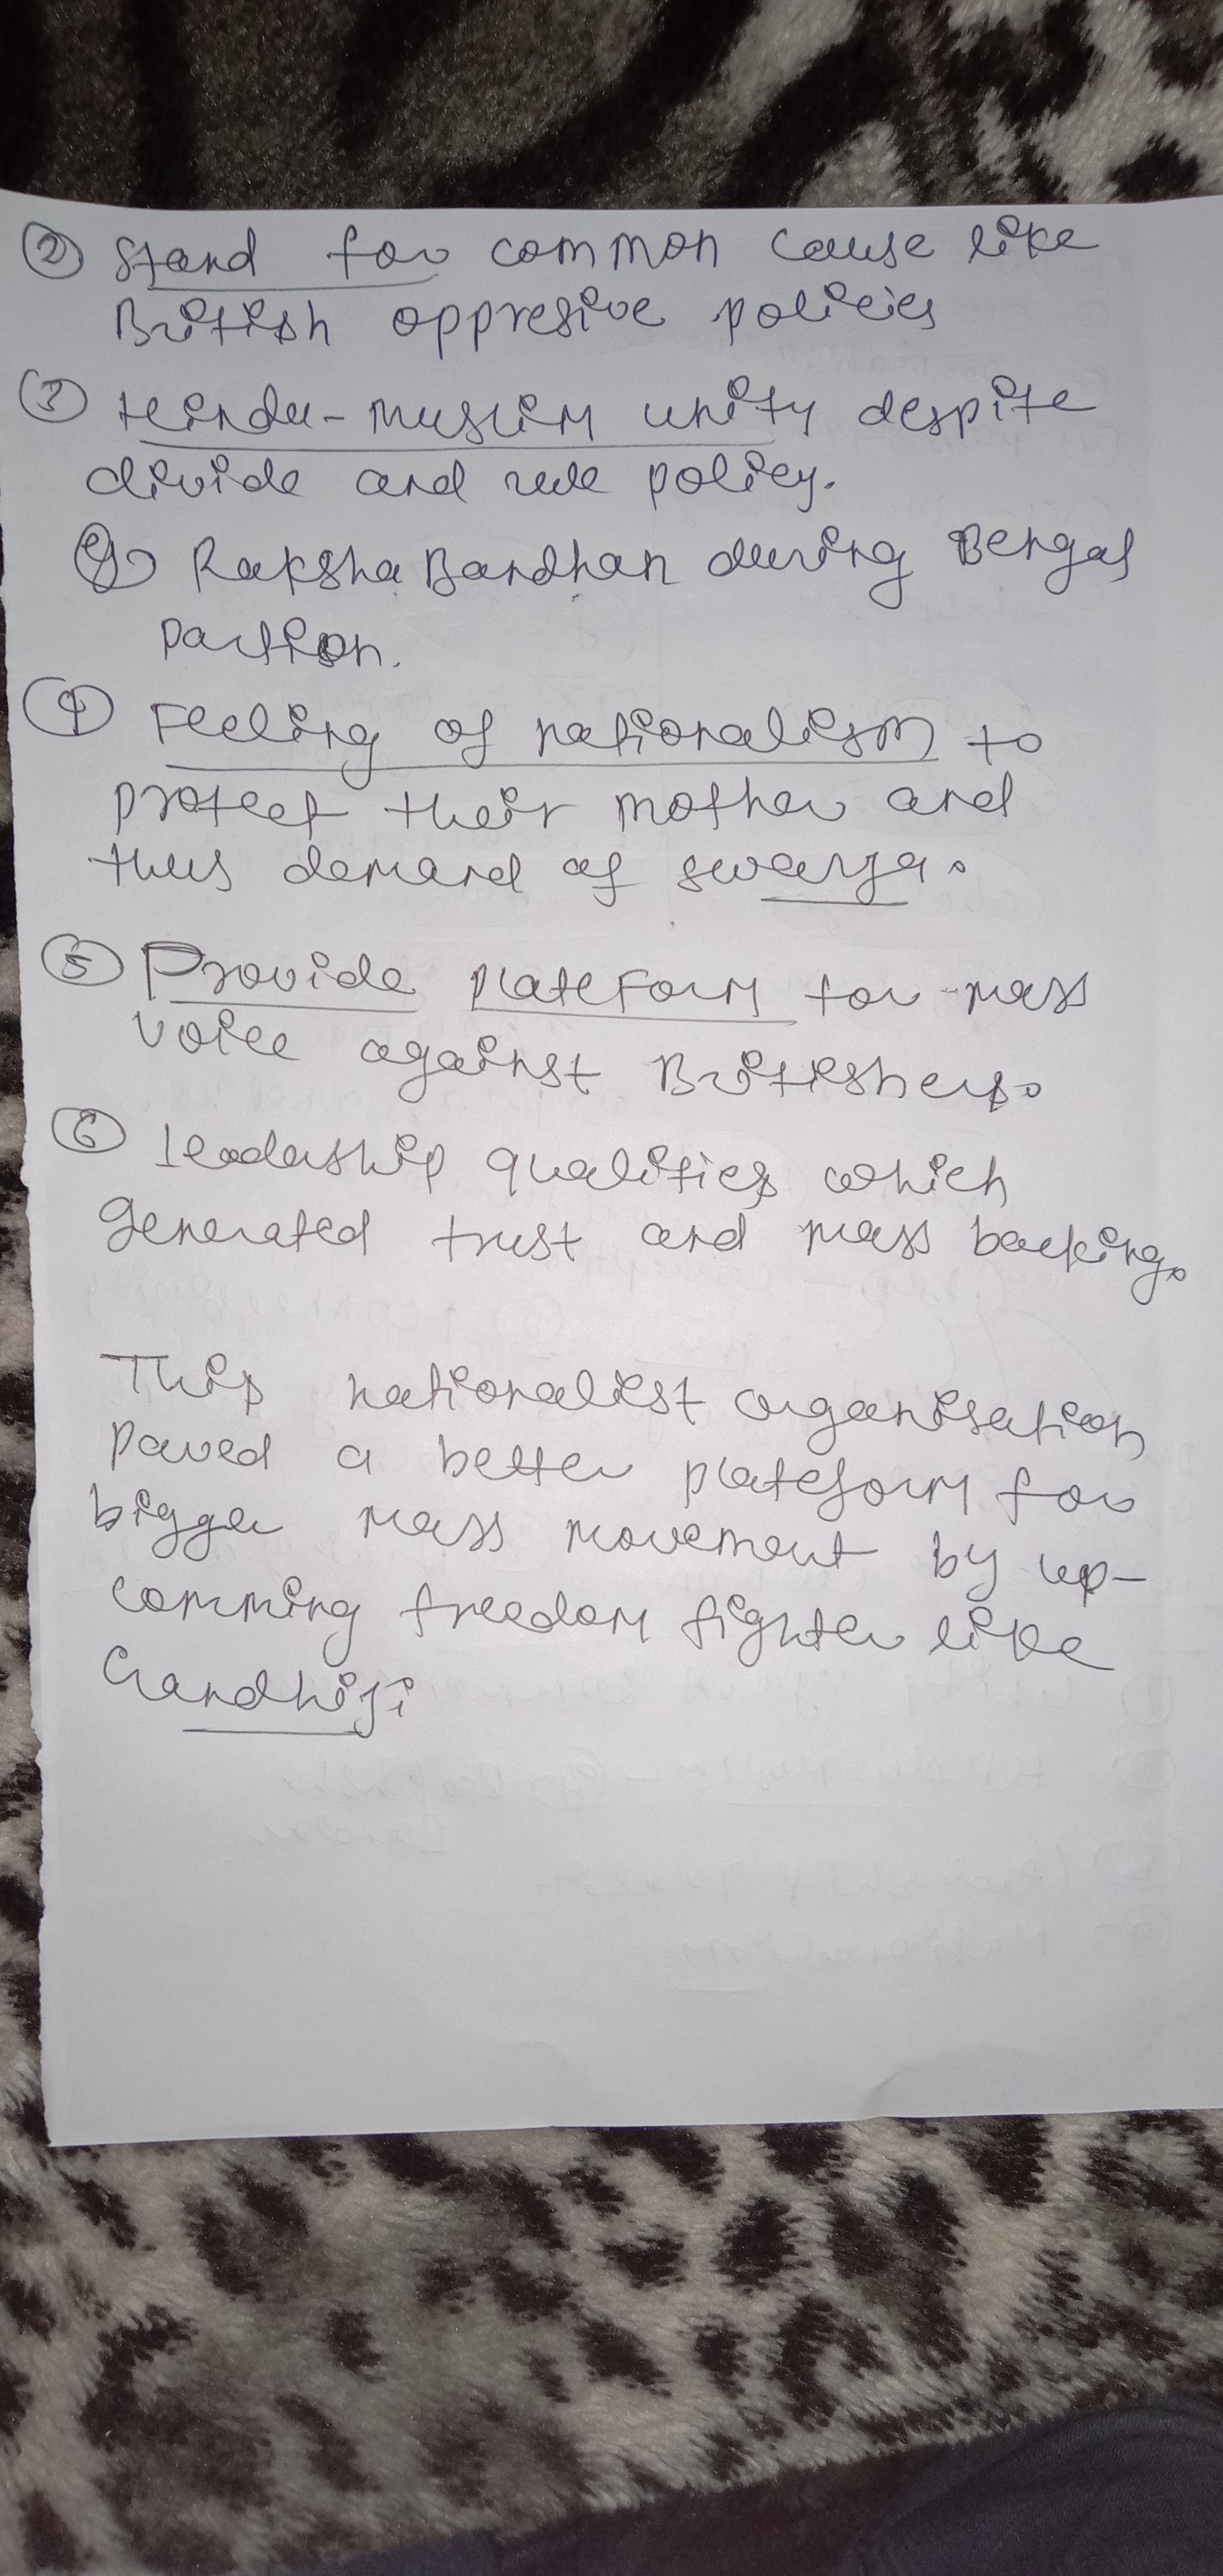 ② Stand for common cause like
British oppresive policies
③ Hindu-Muslim unity despite
divide and rule policy.
eg Raksha Bandhan during Bengal
Partion.
④ Feeling of nationalism to
protect their mother and
thus demand of swarya.
⑤ Provide plateform for mass
voice against Britishers.
⑥ leadership qualities which
generated trust and mass backing.
This nationalist organisation
paved a better plateform for
bigger mass movement by up-
comming freedom fighter like
Gandhiji